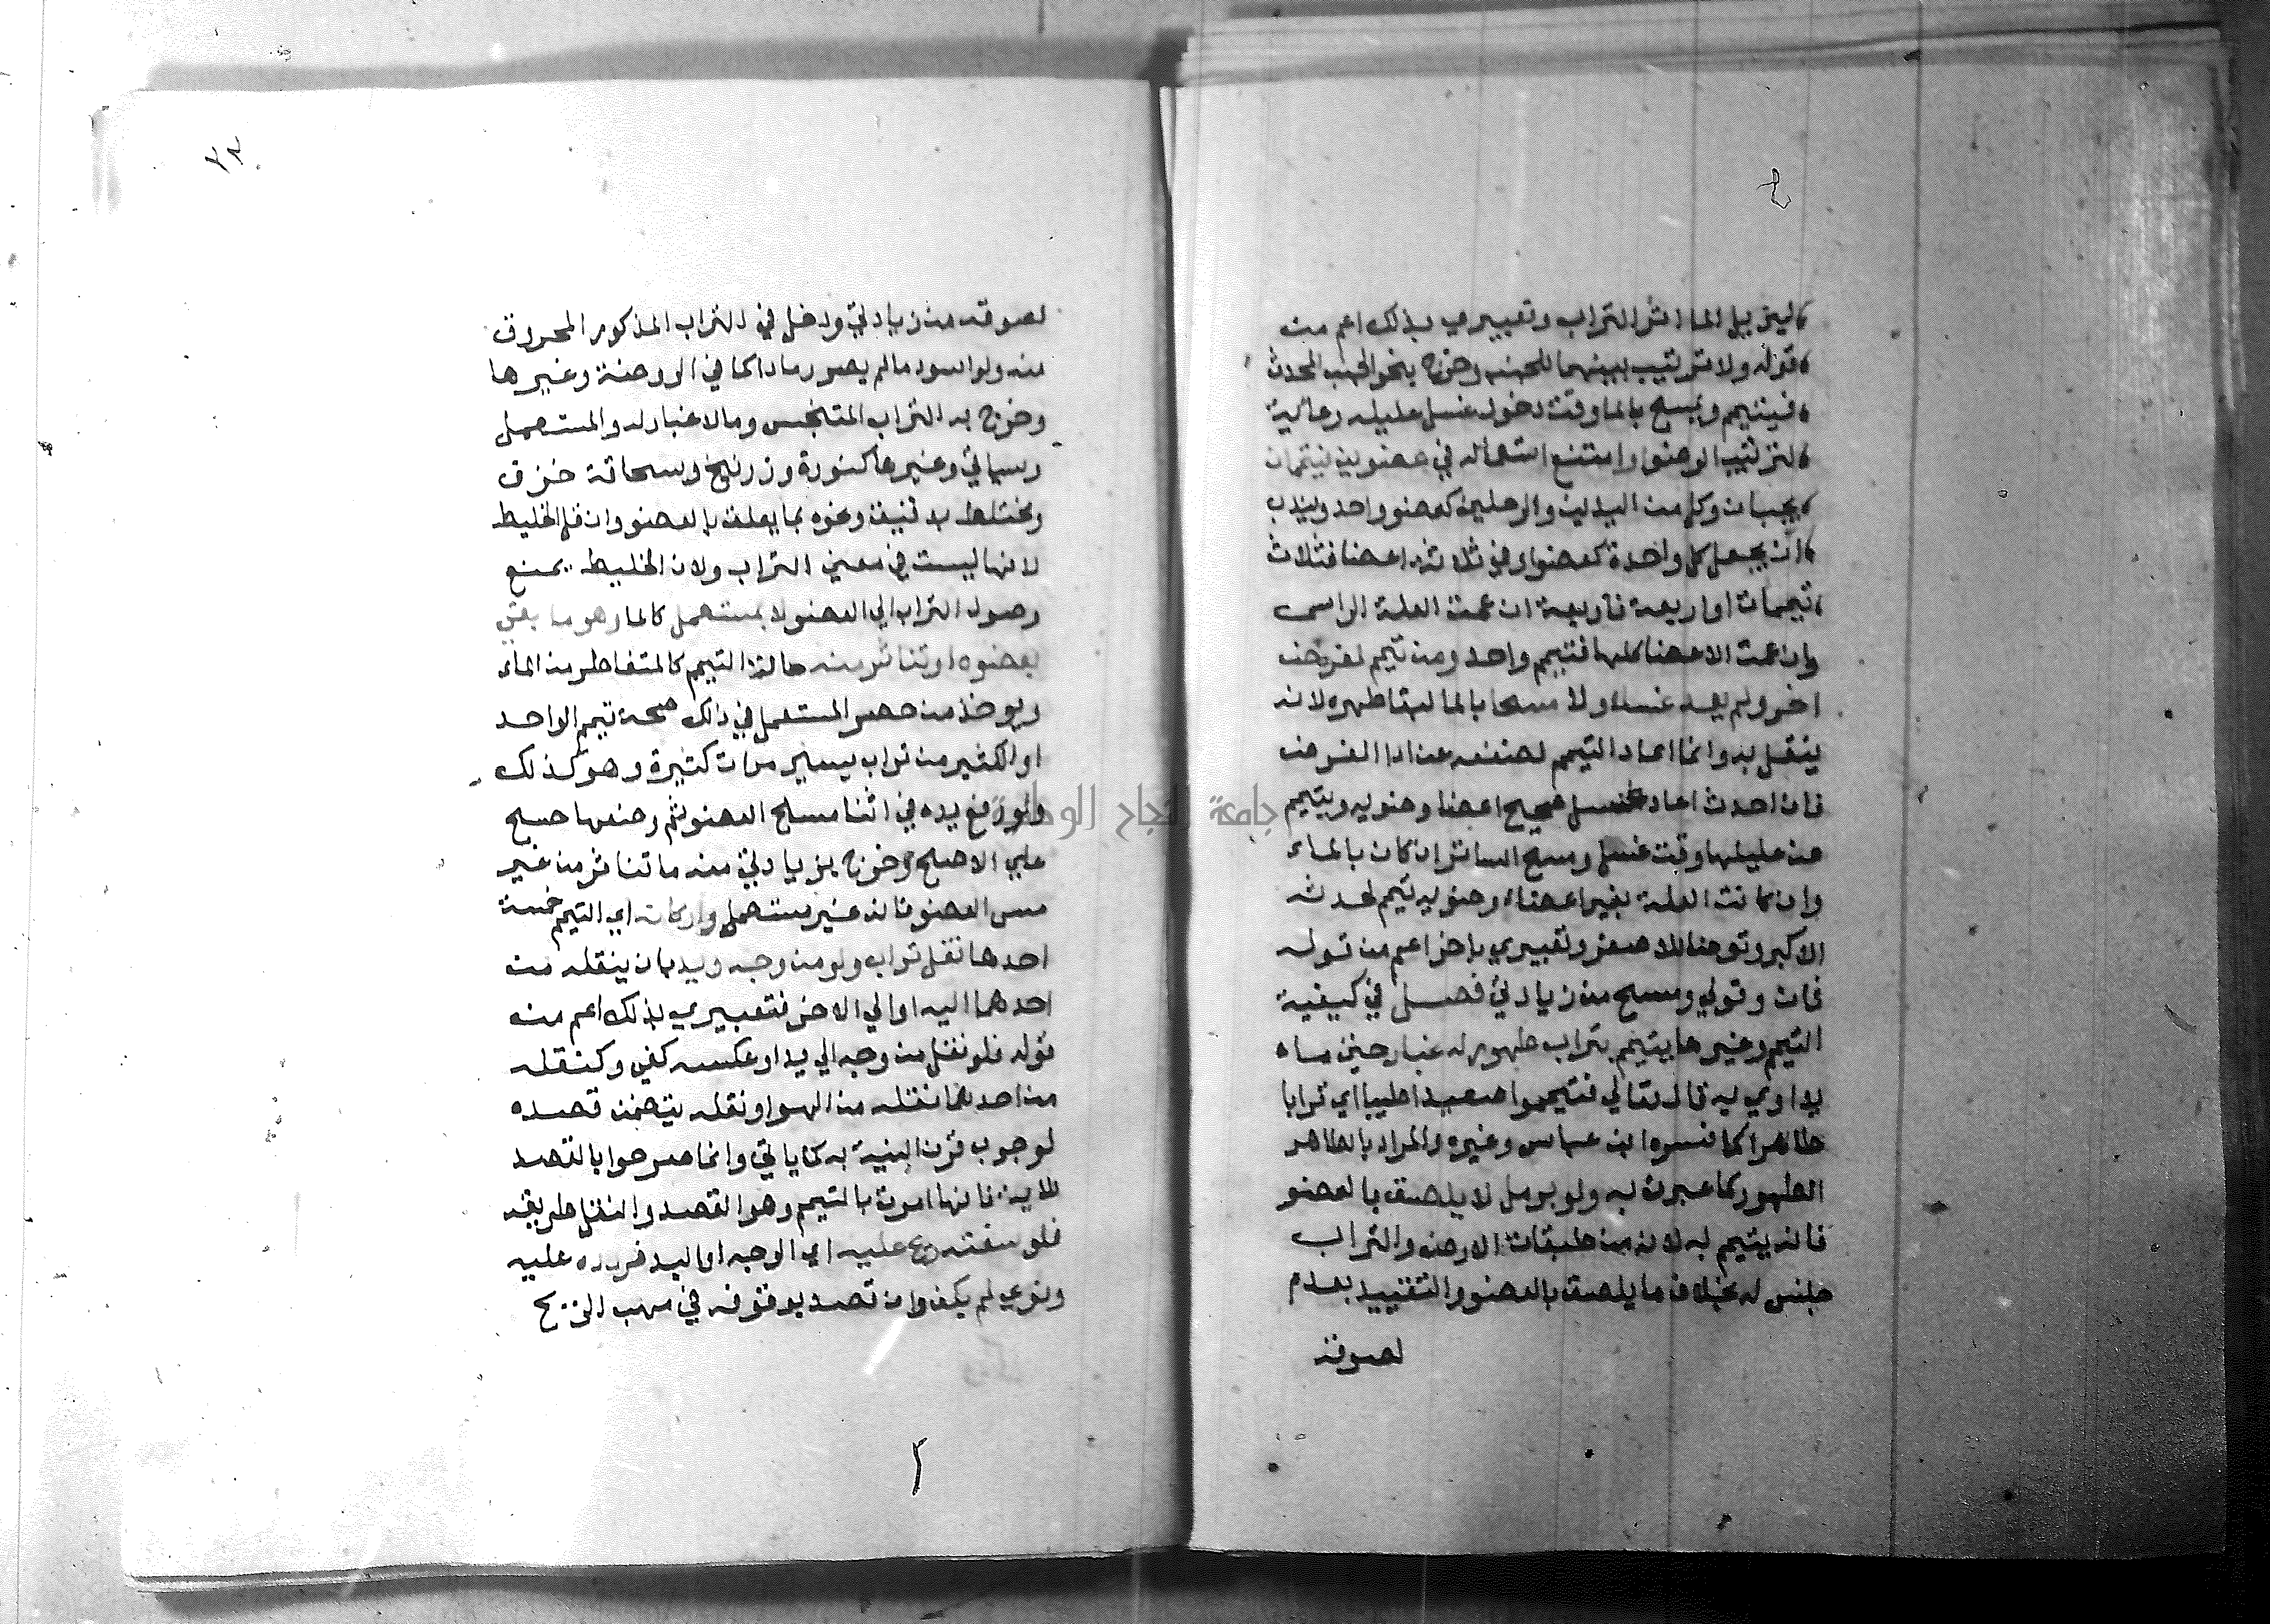 ليزيل الما اثر التراب وتعبيري بذلك اعم من
قوله ولا ترتيب بينهما للجنب وخرج بنحو الجنب المحدث
فيتيمم ويمسح بالما وقت دخول غسل عليله رعاية
لترتيب الوضوء او امتنع استعماله في عضوين فتيممان
يجبان وكل من اليدين والرجلين كعضو واحد ويندب
ان يجعل كل واحدة كعضو او في ثلاثة اعضا فثلاث
تيممات او اربعة فاربعة ان عمت العلة الراس
وان عمت الاعضا كلها فتيمم واحد ومن تيمم لفرض
اخر ولم يعد غسلا ولا مسحا بالما لبقا طهره لانه
يتنفل به وانما اعاد التيمم لضعفه عن ادا الفرض
فان احدث اعاد غسل صحيح اعضا وضوئه ويتيمم
عن عليلها وقت غسله ومسح الساتر ان كان بالماء
وان كانت العلة بغير اعضاء وضوئه تيمم لحدثه
الاكبر وتوضا للاصغر وتعبيري باخر اعم من قوله
فان وقولي ومسح من زيادتي فصل في كيفية
التيمم وغيرها يتيمم بتراب طهور له غبار حتى ما
يداوي به قال تعالى فتيمموا صعيدا طيبا اي ترابا
طاهرا كما فسره ابن عباس وغيره والمراد بالطاهر
الطهور كما عبرت به ولو برمل لا يلصق بالعضو
فانه يتيمم به لانه من طبقات الارض والتراب
جنس له بخلاف ما يلصق بالعضو والتقييد بعدم
لصوقه
٣٢
لصوقه من زيادتي ودخل في التراب المذكور المحروق
منه ولو اسود ما لم يصر رمادا كما في الروضة وغيرها
وخرج به التراب المتنجس وما لا غبار له والمستعمل
وسياتي وغيرها كنورة وزرنيخ وسحاقة خزف
ومختلط بدقيق ونحوه مما يعلق بالعضو وان قل الخليط
لانها ليست في معنى التراب ولان الخليط يمنع
وصول التراب الى العضو لا بمستعمل كالما وهو ما بقي
بعضوه او تناثر منه حالة التيمم كالمتقاطر من الماء
ويوخذ من حصر المستعمل في ذلك صحة تيمم الواحد
او الكثير من تراب يسير مرات كثيرة وهو كذلك
ولو رفع يده في اثنا مسح العضو ثم وضعها صح
على الاصح وخرج بزيادتي منه ما تناثر من غير
مس العضو فانه غير مستعمل واركانه اي التيمم خمسة
احدها نقل تراب ولو من وجه ويد بان ينقله من
احدهما اليه او الى الاخر فتعبيري بذلك اعم من
قوله فلو نقل من وجه الى يد او عكسه كفى وكنقله
من احدهما نقله من الهوا ونقله يتضمن قصده
لوجوب قرن النية به كما ياتي وانما صرحوا بالقصد
للاية فانها امرت بالتيمم وهو القصد والنقل طريقه
فلو سفته ريح عليه اي الوجه او اليد فردده عليه
ونوى لم يكف وان قصد بوقوفه في مهب الريح
جامعة النجاح الوطنية